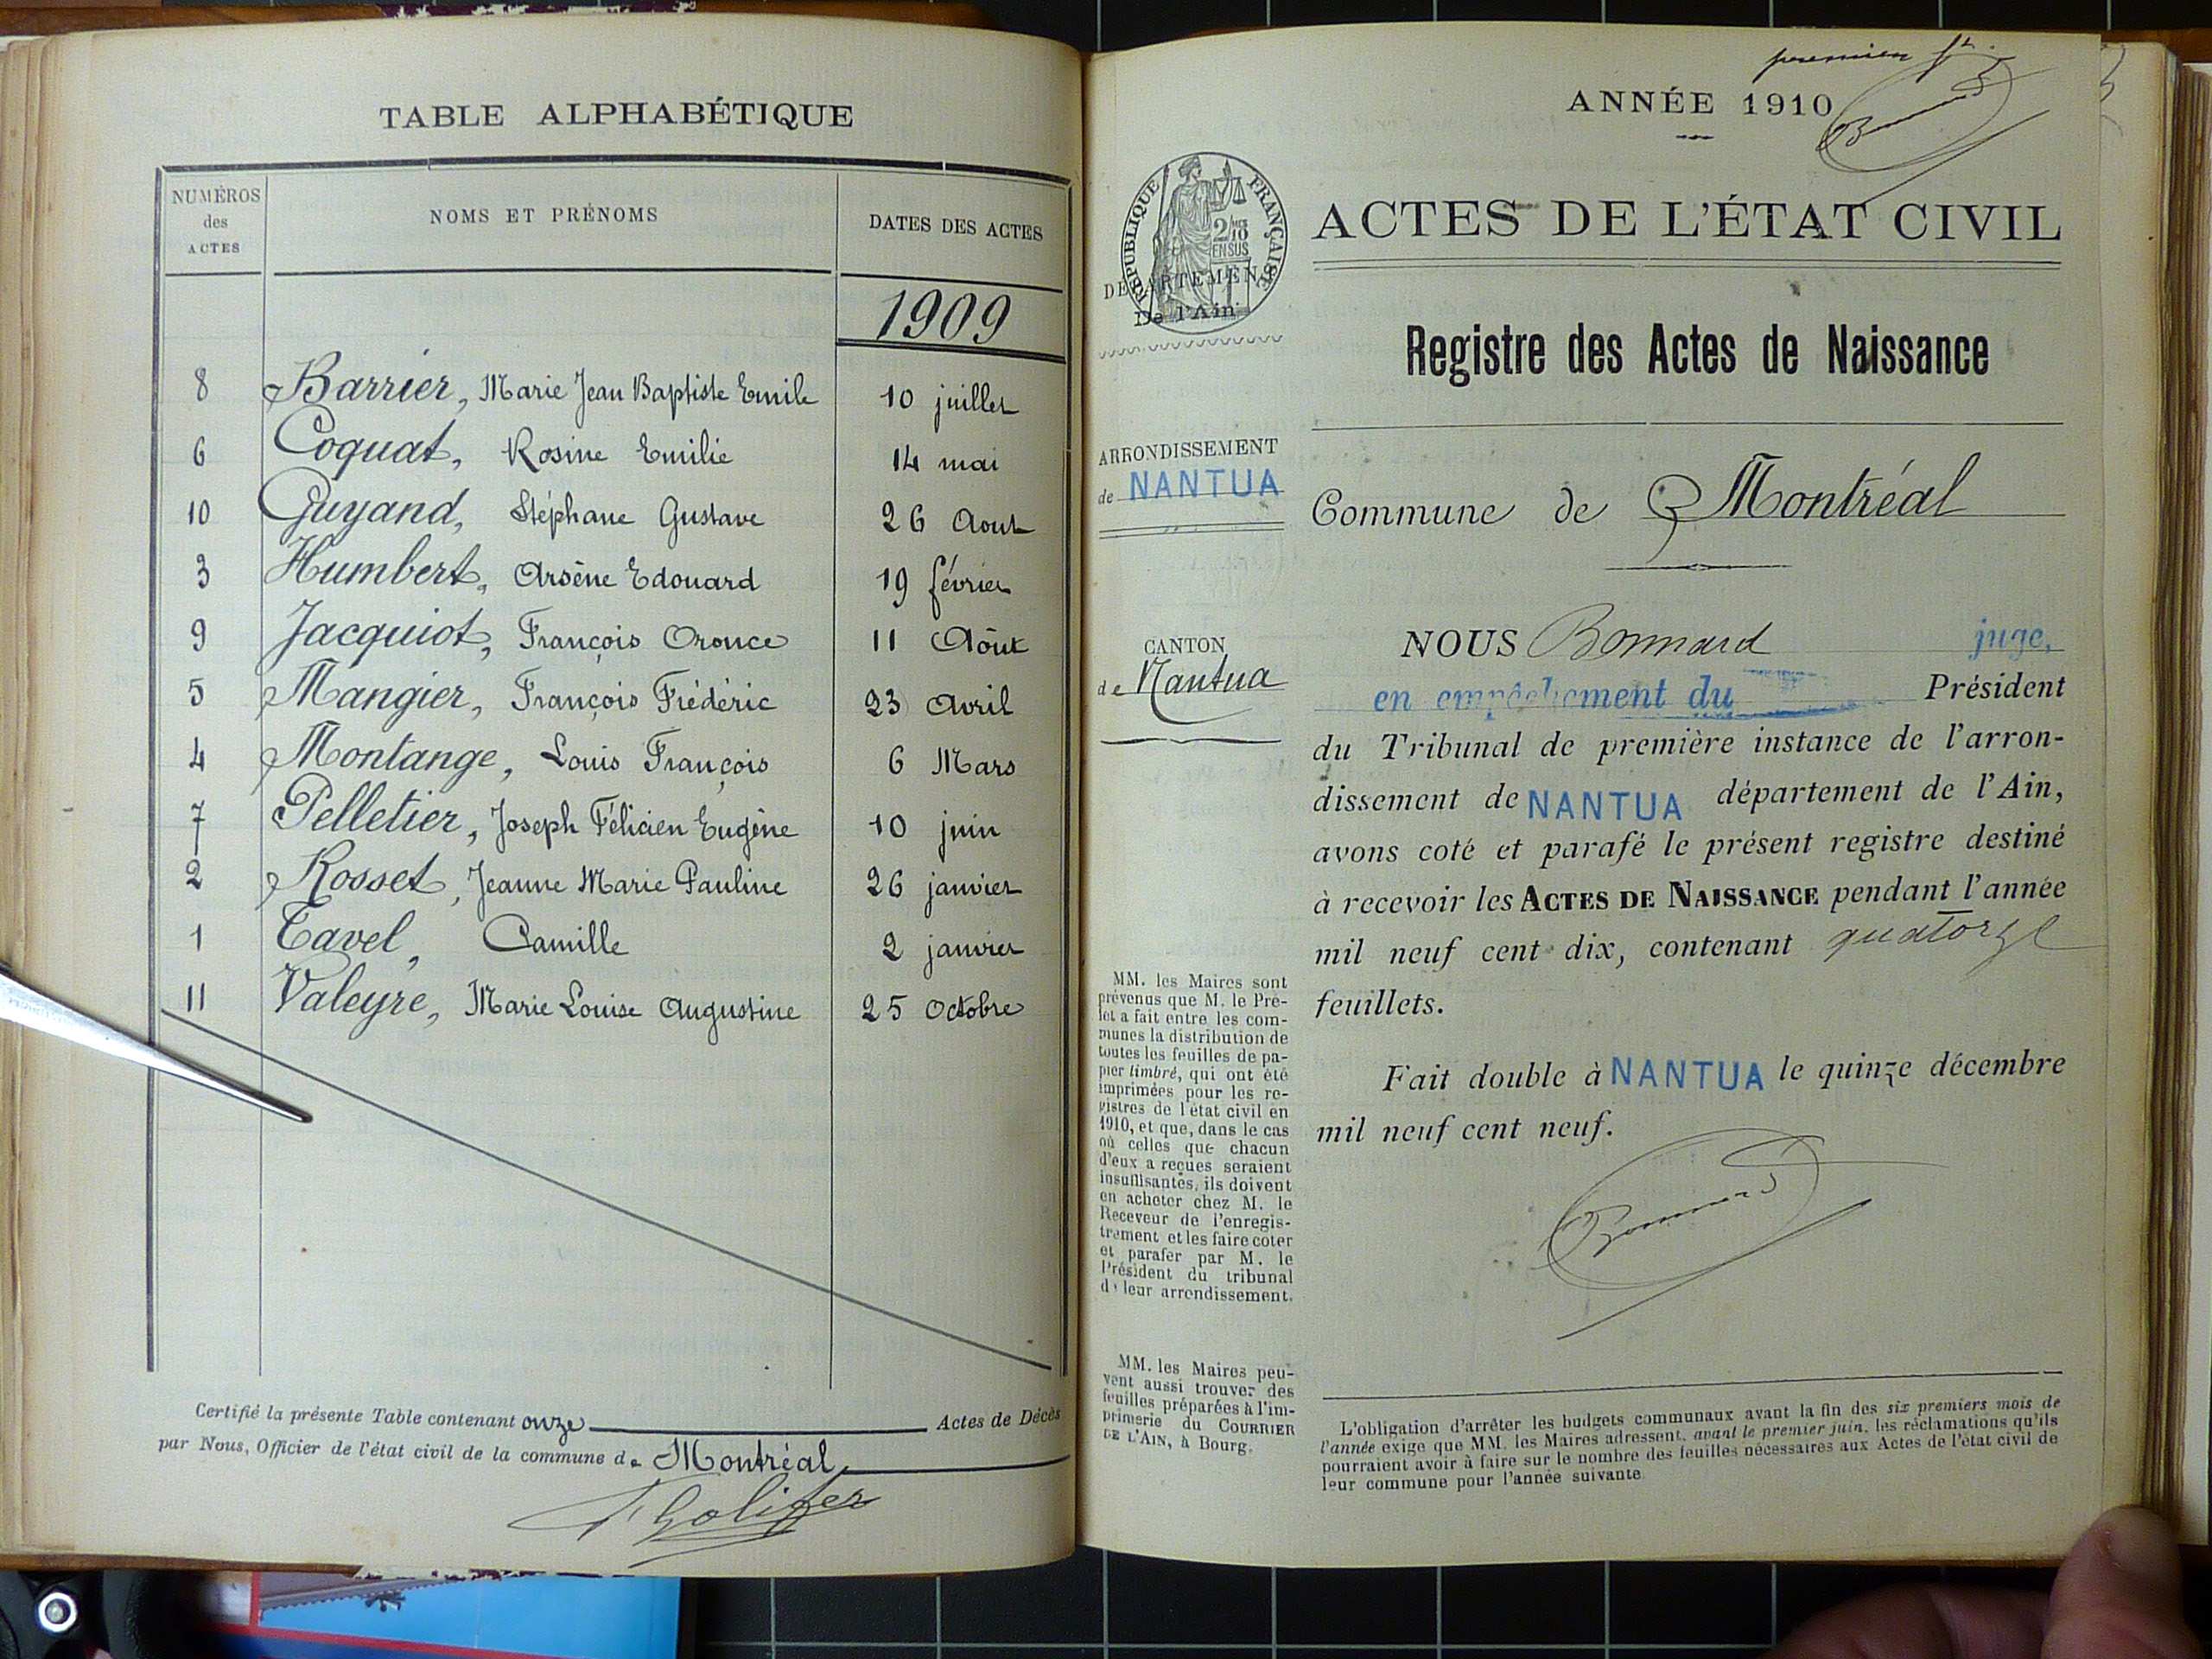 TABLE ALPHABÉTIQUE
NUMÉROS des ACTES
NOMS ET PRÉNOMS
DATES DES ACTES
1909
8 Barrier, Marie Jean Baptiste Emile 10 juillet
6 Coquat, Rosine Emilie 14 mai
10 Guyand, Stéphane Gustave 26 Aout
3 Humbert, Arsène Edouard 19 février
9 Jacquiot, François Oronce 11 Aôut
5 Mangier, François Frédéric 23 Avril
4 Montange, Louis François 6 Mars
7 Pelletier, Joseph Félicien Eugène 10 juin
2 Rosset, Jeanne Marie Pauline 26 janvier
1 Tavel, Camille 2 janvier
11 Valeyre, Marie Louise Augustine 25 Octobre
Certifié la présente Table contenant onze Actes de Décès
par Nous, Officier de l'état civil de la commune de Montréal
premier ft.
ANNÉE 1910
RÉPUBLIQUE FRANÇAISE
2/10
EN SUS
DÉPARTEMENT
De l'Ain
ACTES DE L'ÉTAT CIVIL
Registre des Actes de Naissance
ARRONDISSEMENT
de NANTUA
Commune de Montréal
CANTON
de Nantua
NOUS Bonnard juge,
en empêchement du Président
du Tribunal de première instance de l'arron-
dissement de NANTUA département de l'Ain,
avons coté et parafé le présent registre destiné
à recevoir les ACTES DE NAISSANCE pendant l'année
mil neuf cent dix, contenant quatorze
feuillets.
Fait double à NANTUA le quinze décembre
mil neuf cent neuf.
Bonnard
MM. les Maires sont
prévenus que M. le Pré-
fet a fait entre les com-
munes la distribution de
toutes les feuilles de pa-
pier timbré, qui ont été
imprimées pour les re-
gistres de l'état civil en
1910, et que, dans le cas
où celles que chacun
d'eux a reçues seraient
insuffisantes, ils doivent
en acheter chez M. le
Receveur de l'enregis-
trement et les faire coter
et parafer par M. le
Président du tribunal
de leur arrondissement.
MM. les Maires peu-
vent aussi trouver des
feuilles préparées à l'im-
primerie du COURRIER
DE L'AIN, à Bourg.
L'obligation d'arrêter les budgets communaux avant la fin des six premiers mois de
l'année exige que MM. les Maires adressent, avant le premier juin, les réclamations qu'ils
pourraient avoir à faire sur le nombre des feuilles nécessaires aux Actes de l'état civil de
leur commune pour l'année suivante